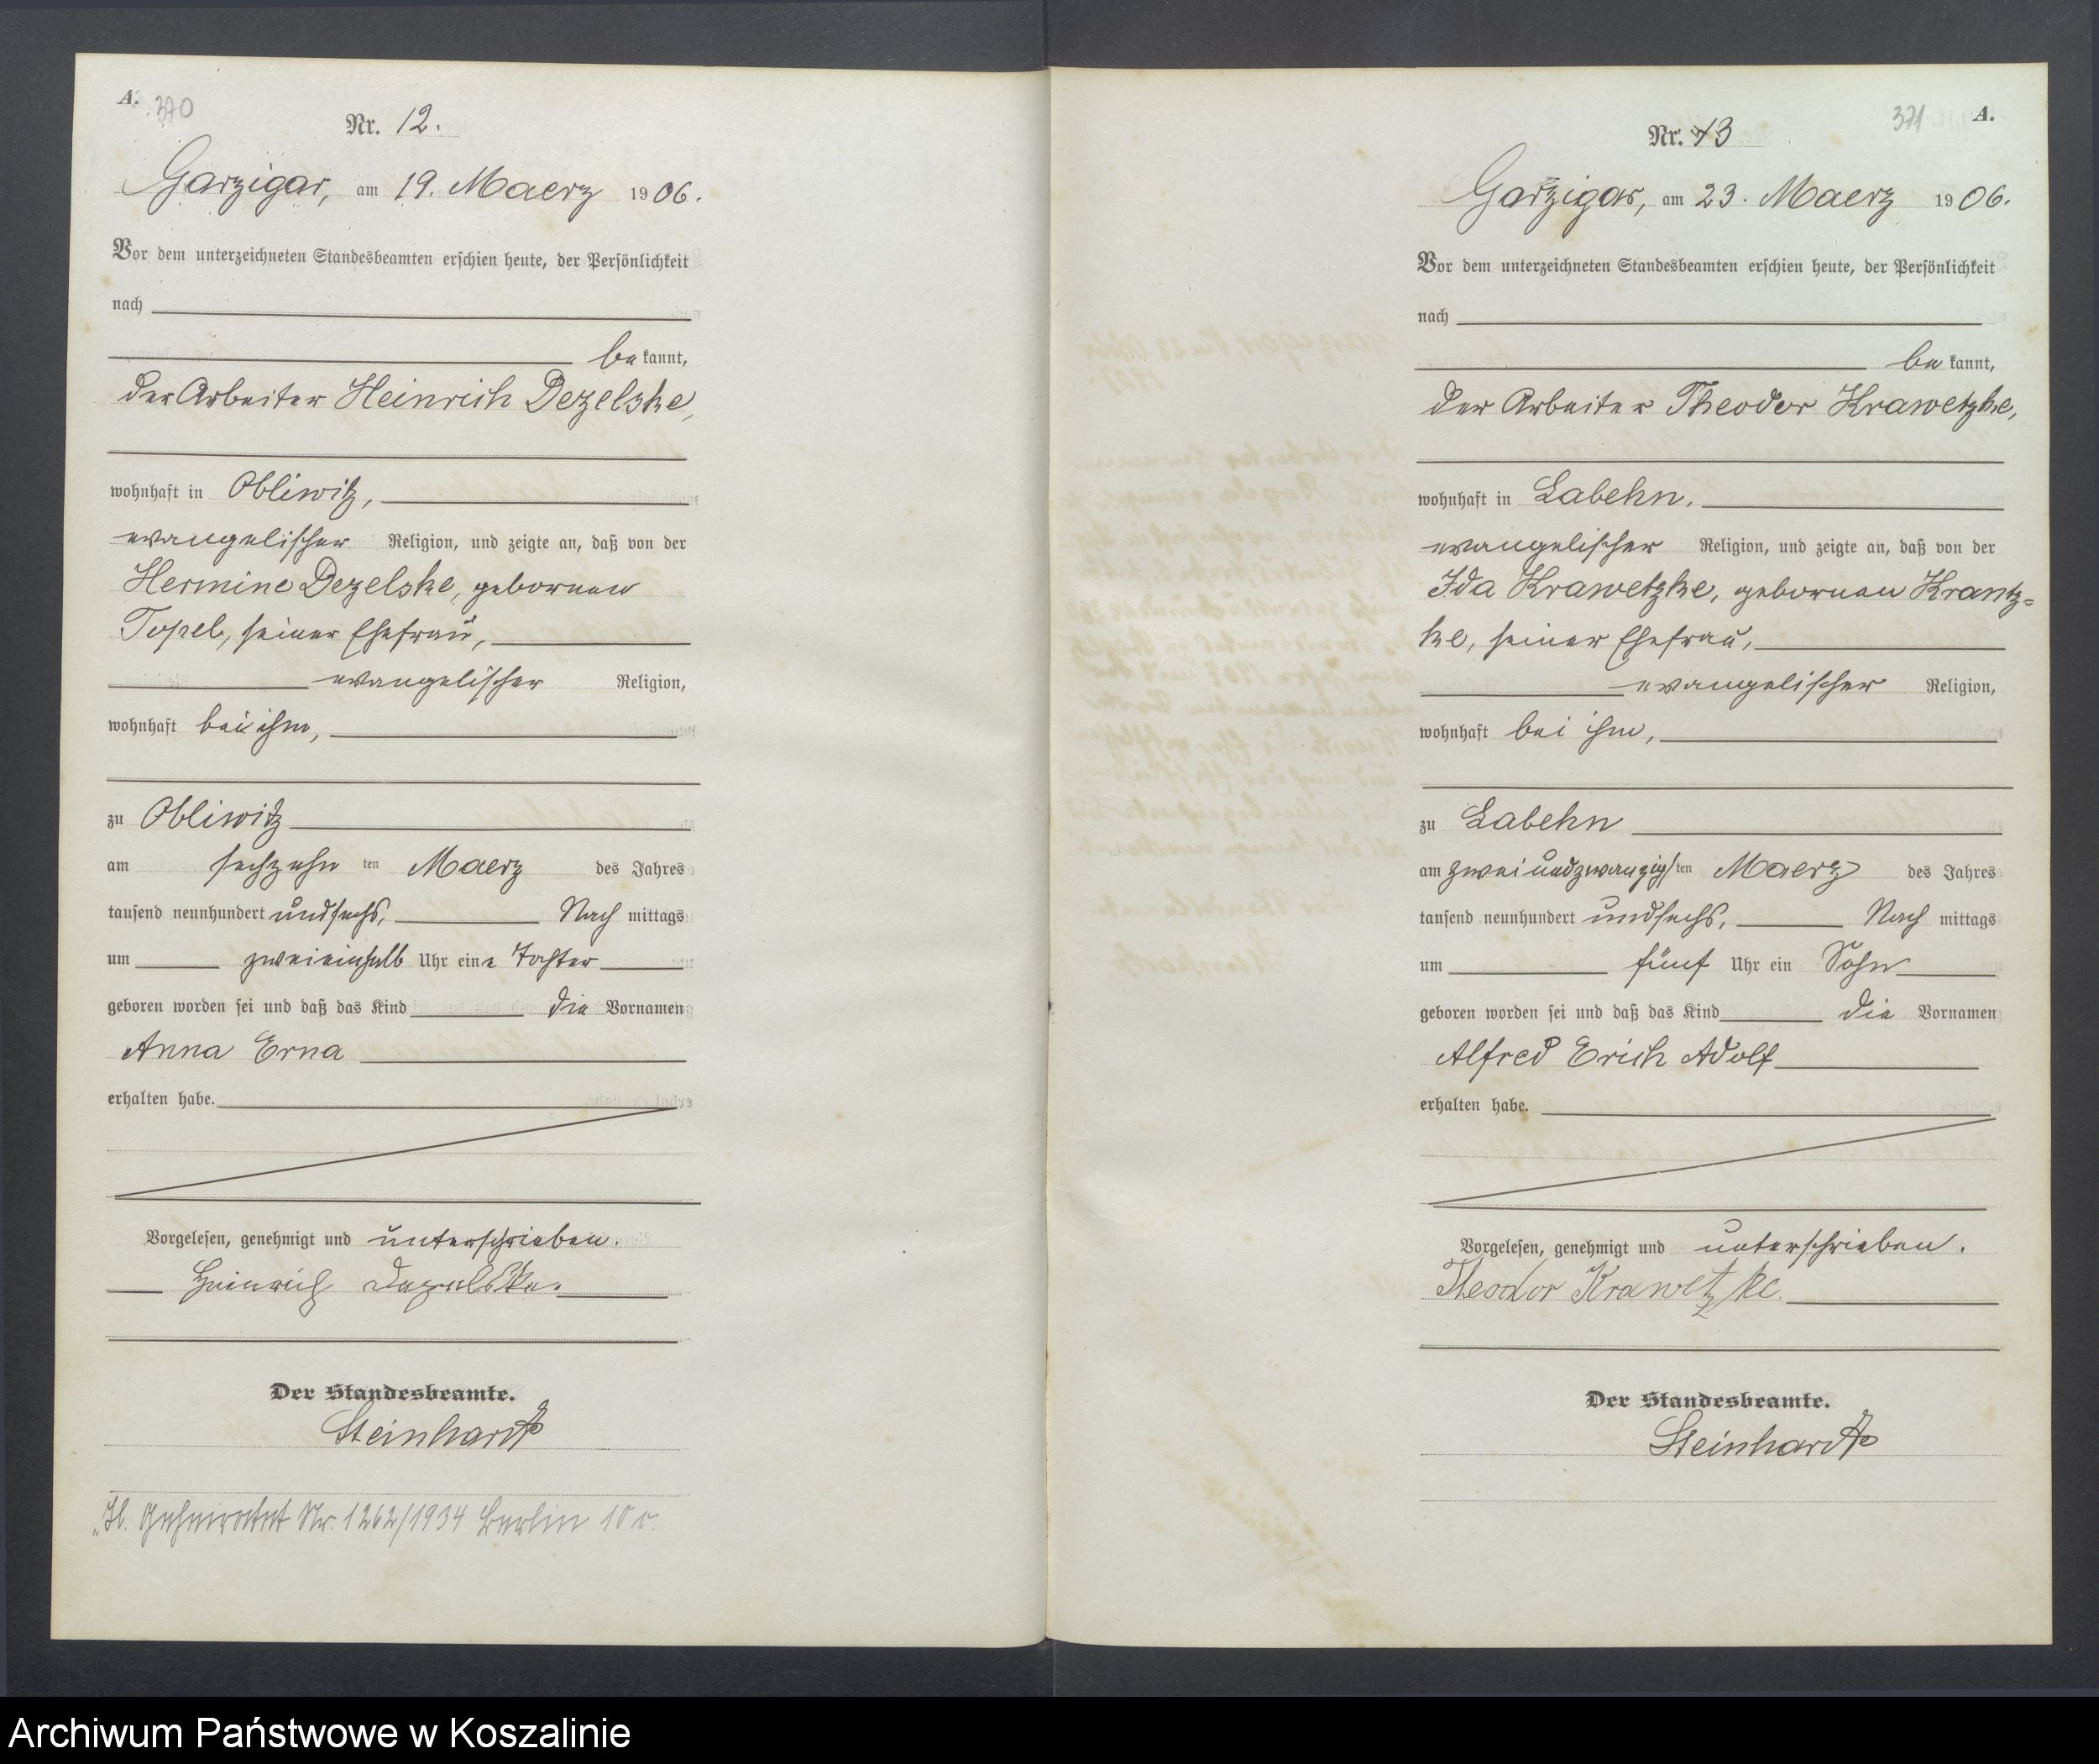 A. 370
Nr. 12.
Garzigar, am 19. Maerz 1906.
Vor dem unterzeichneten Standesbeamten erschien heute, der Persönlichkeit
nach
bekannt,
der Arbeiter Heinrich Dezelske,
wohnhaft in Obliwitz,
evangelischer Religion, und zeigte an, daß von der
Hermine Dezelske, geborenen
Topel, seiner Ehefrau,
evangelischer Religion,
wohnhaft bei ihm,
zu Obliwitz
am sechzehnten Maerz des Jahres
tausend neunhundert undsechs, Nachmittags
um zweieinhalb Uhr eine Tochter
geboren worden sei und daß das Kind die Vornamen
Anna Erna
erhalten habe.
Vorgelesen, genehmigt und unterschrieben.
Heinrich Dezelske.
Der Standesbeamte.
Steinhardt
Geheiratet Nr. 1262/1934 Berlin 10 c.
371 A.
Nr. 13
Garzigar, am 23. Maerz 1906.
Vor dem unterzeichneten Standesbeamten erschien heute, der Persönlichkeit
nach
bekannt,
der Arbeiter Theodor Krawetzke,
wohnhaft in Labehn,
evangelischer Religion, und zeigte an, daß von der
Ida Krawetzke, geborenen Krantz=
ke, seiner Ehefrau,
evangelischer Religion,
wohnhaft bei ihm,
zu Labehn
am zweiundzwanzigsten Maerz des Jahres
tausend neunhundert undsechs, Nachmittags
um fünf Uhr ein Sohn
geboren worden sei und daß das Kind die Vornamen
Alfred Erich Adolf
erhalten habe.
Vorgelesen, genehmigt und unterschrieben.
Theodor Krawetzke.
Der Standesbeamte.
Steinhardt
Archiwum Państwowe w Koszalinie